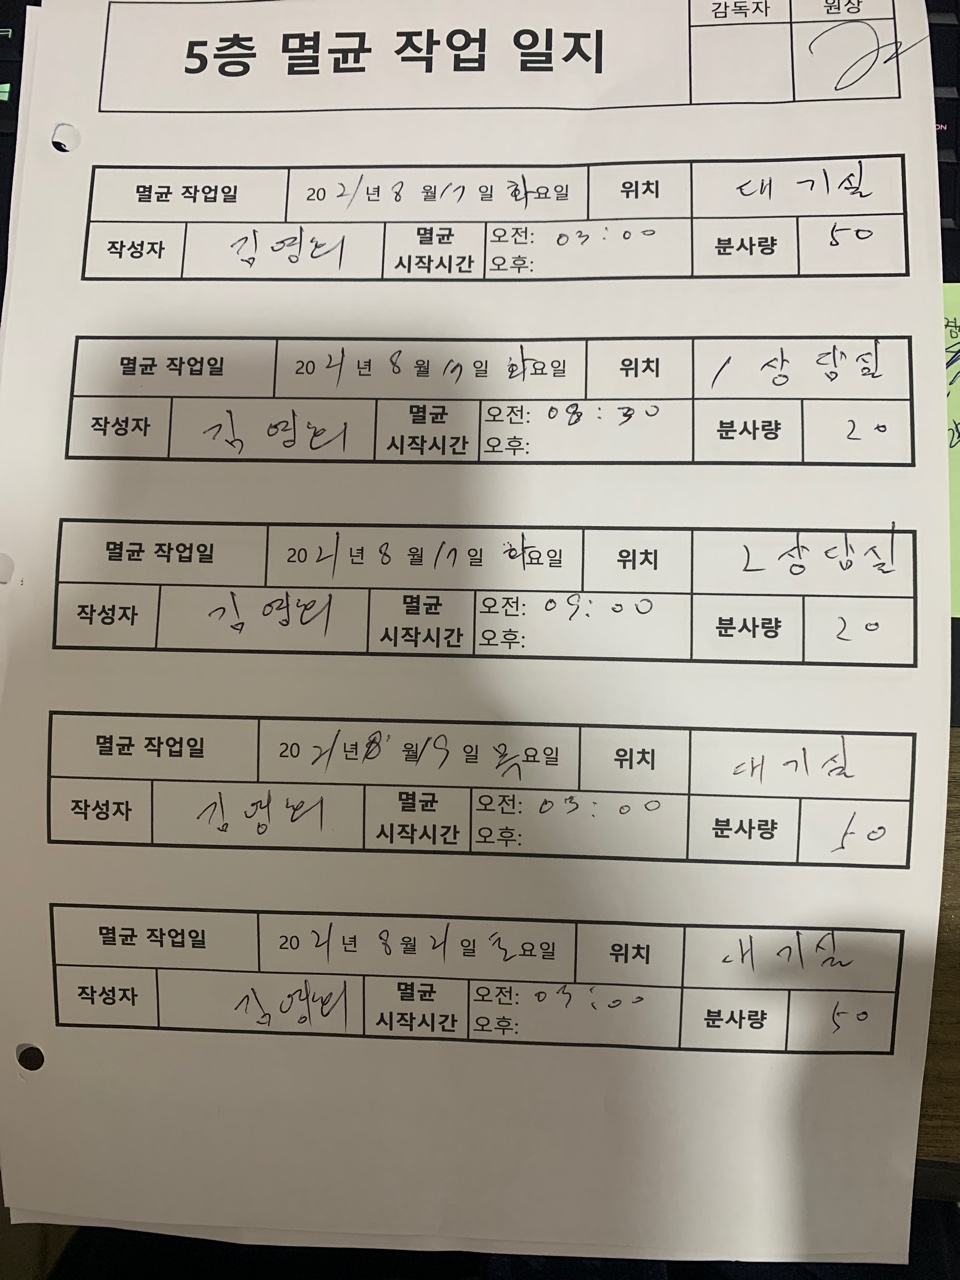 감독자 원장
5층 멸균 작업 일지
멸균 작업일 2021년 8월 17일 화요일 위치 대기실
작성자 멸균 시작시간 오전: 03:00 오후: 분사량 50
멸균 작업일 2021년 8월 17일 화요일 위치 1 상담실
작성자 멸균 시작시간 오전: 08:30 오후: 분사량 20
멸균 작업일 2021년 8월 17일 화요일 위치 2 상담실
작성자 멸균 시작시간 오전: 09:00 오후: 분사량 20
멸균 작업일 2021년 8월 19일 목요일 위치 대기실
작성자 멸균 시작시간 오전: 03:00 오후: 분사량 50
멸균 작업일 2021년 8월 21일 토요일 위치 대기실
작성자 멸균 시작시간 오전: 03:00 오후: 분사량 50